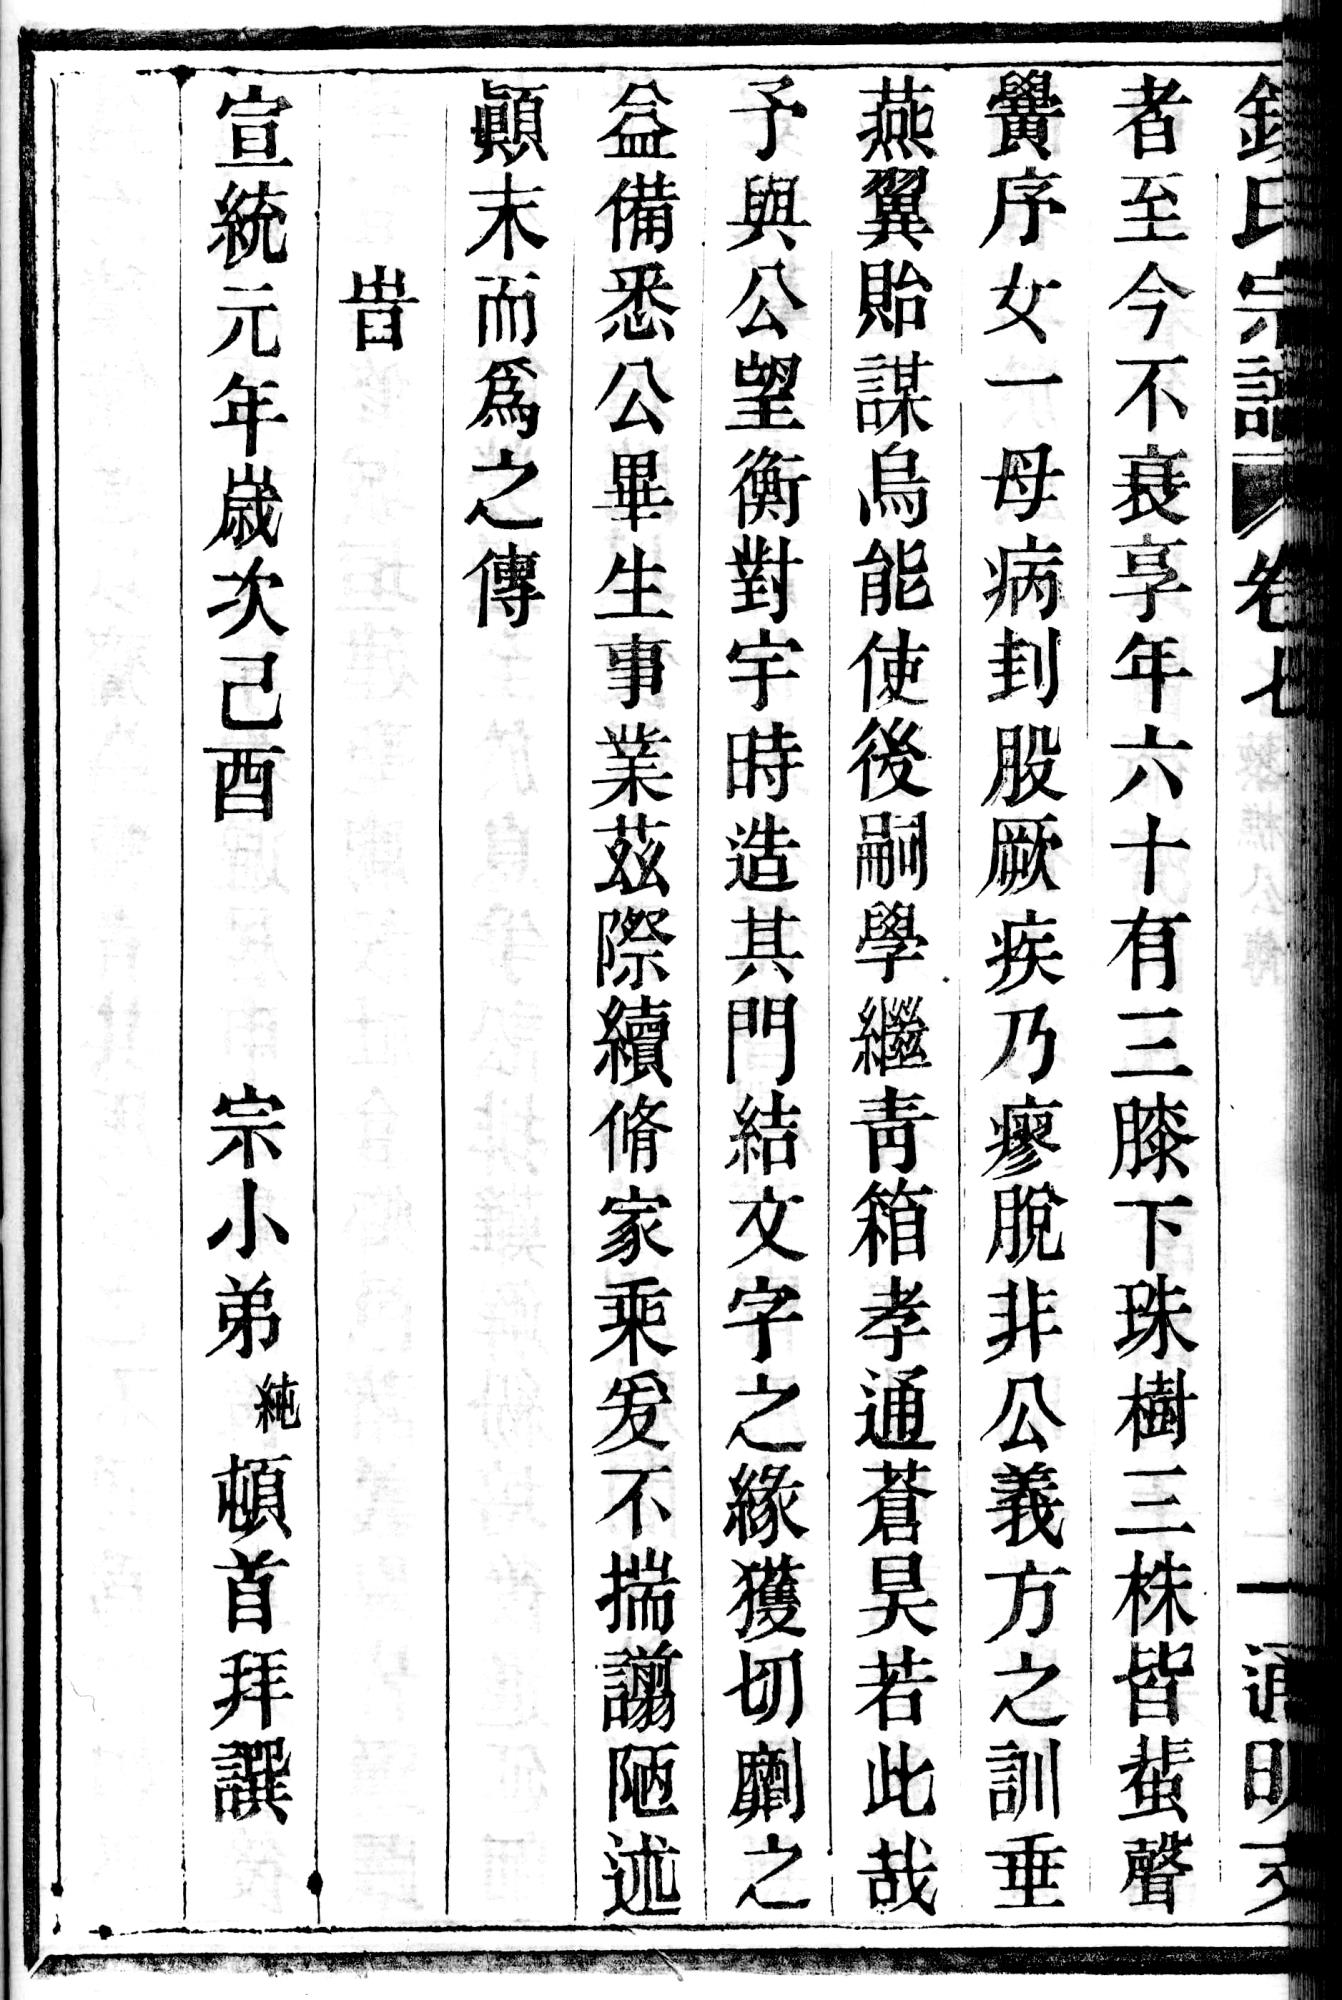 氏宗譜 卷七 一 通明支
者至今不衰享年六十有三膝下珠樹三株皆蜚聲
黌序女一母病刲股厥疾乃瘳脫非公義方之訓垂
燕翼貽謀烏能使後嗣學繼靑箱孝通蒼昊若此哉
予與公望衡對宇時造其門結文字之緣獲切劘之
益備悉公畢生事業茲際續脩家乘爰不揣謭陋述
顚末而爲之傳
旹
宣統元年歲次己酉 宗小弟純頓首拜譔